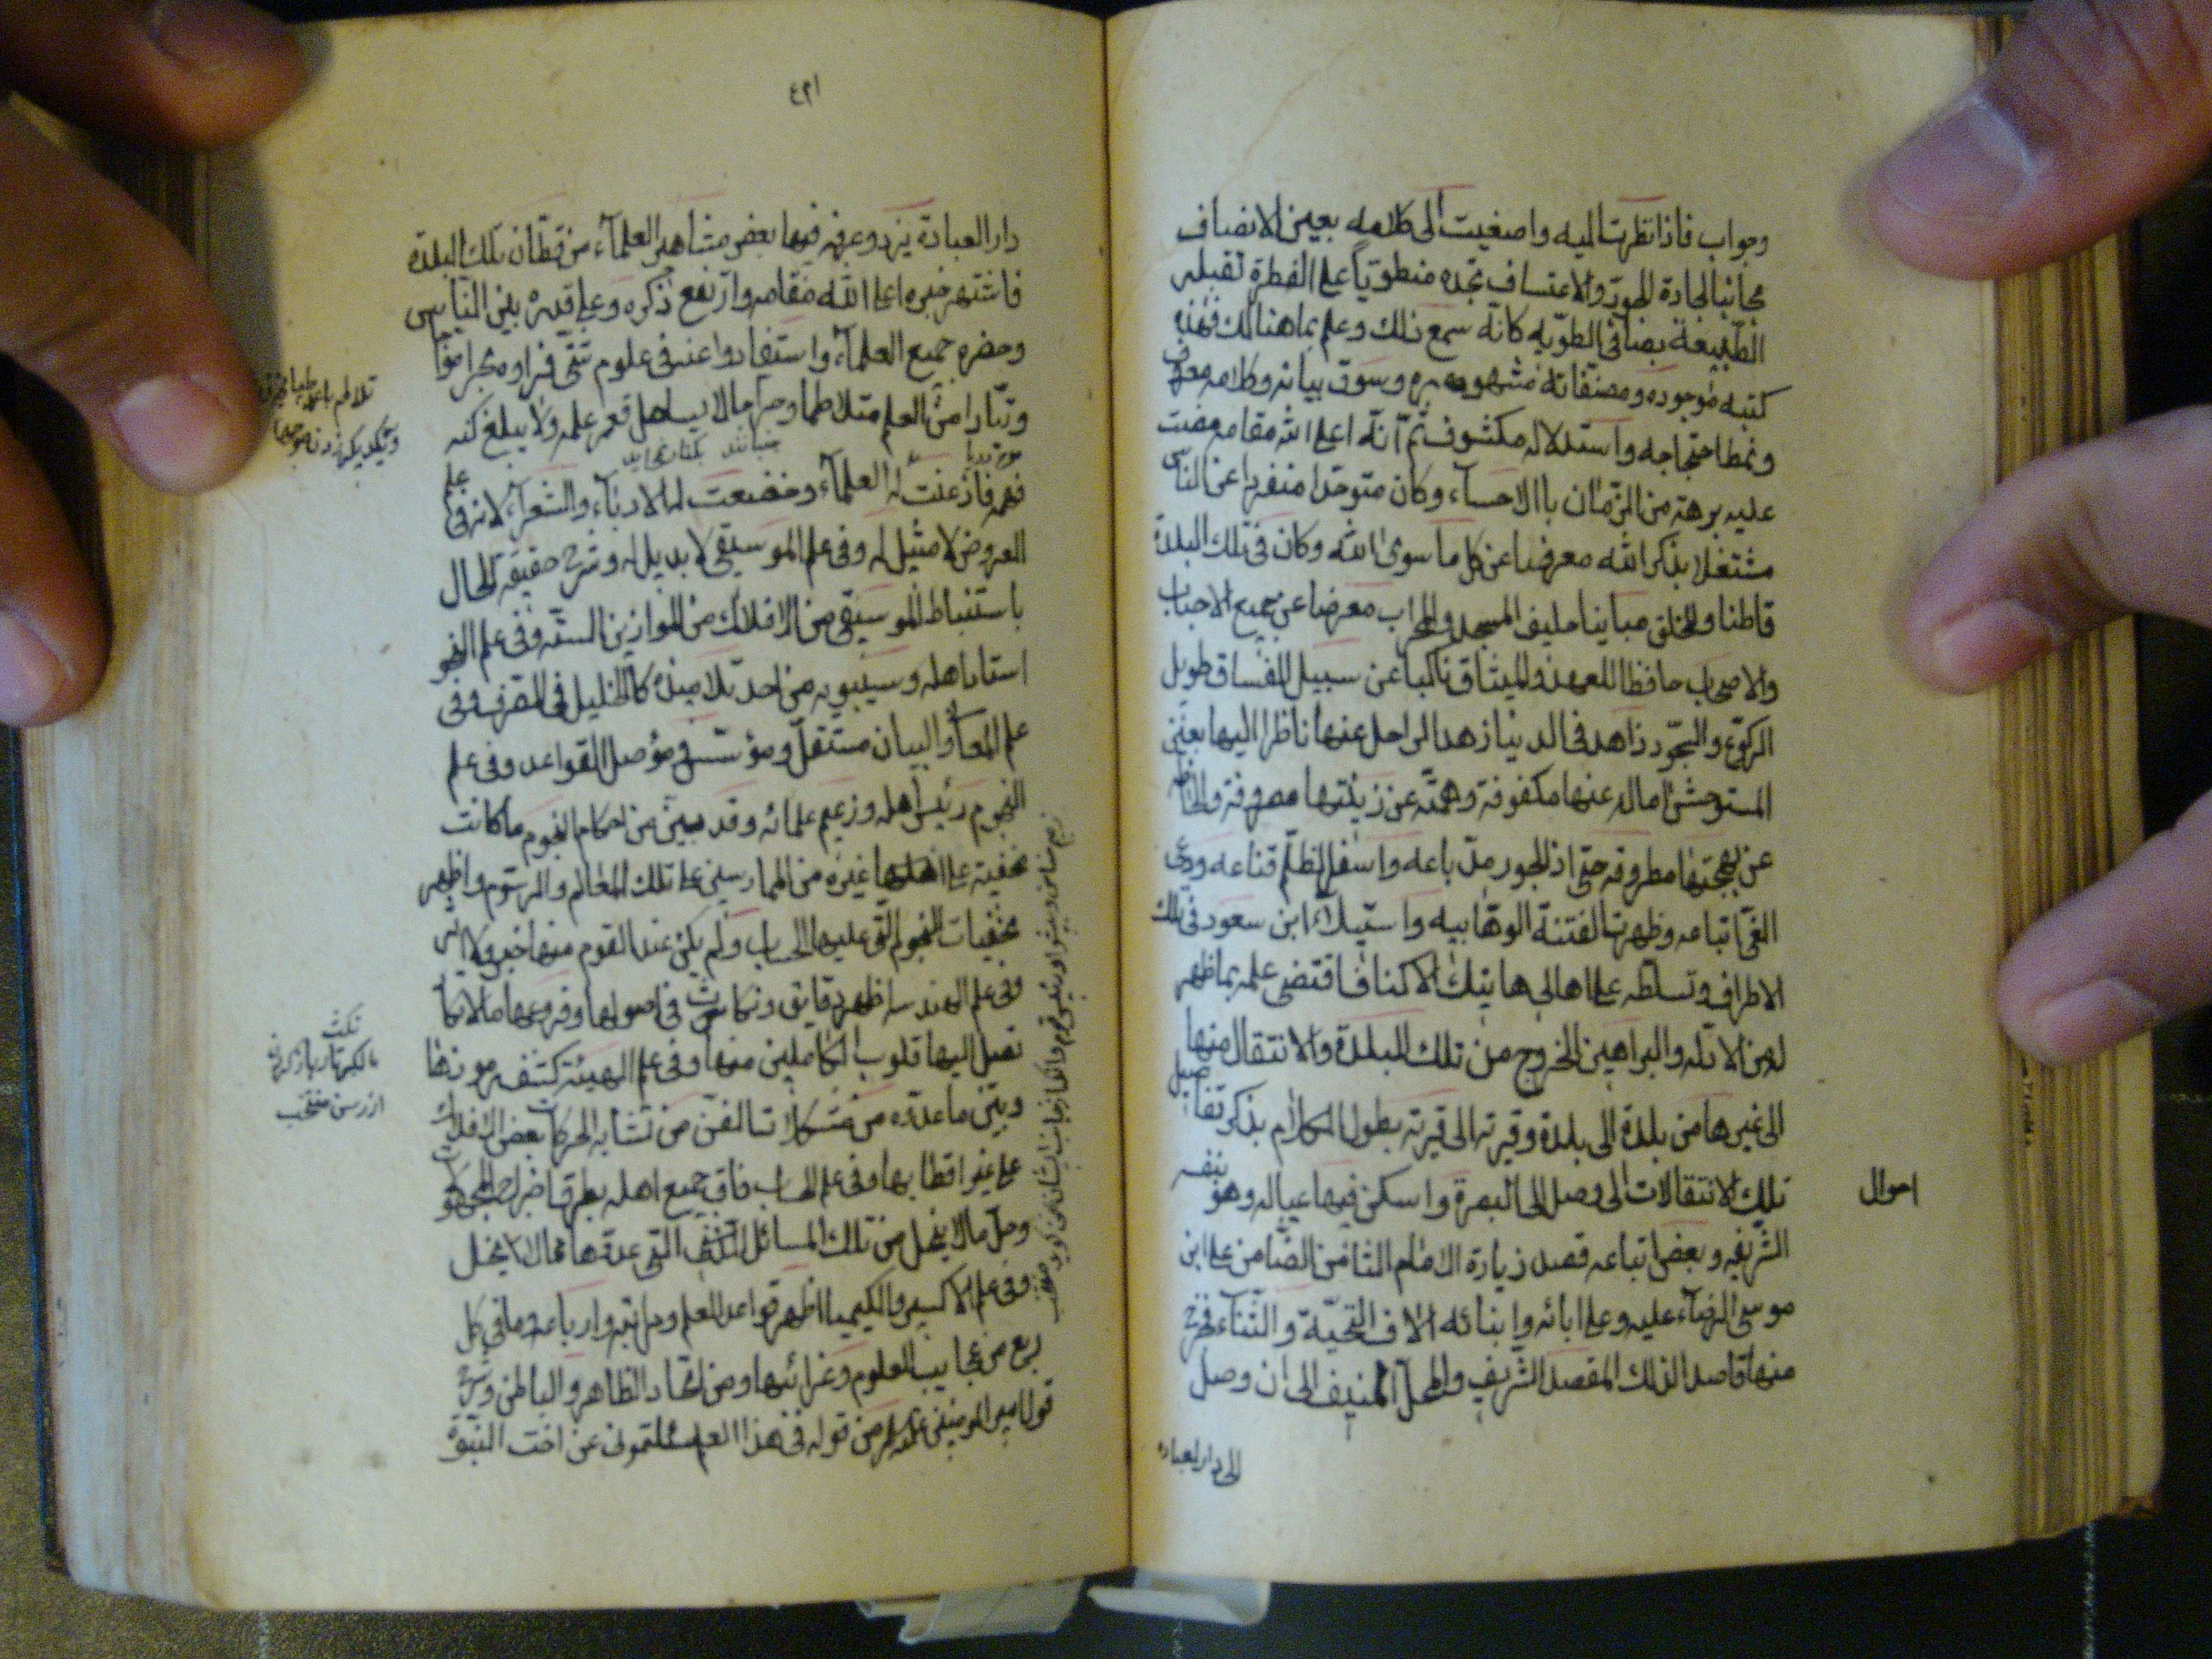 وجواب فاذا نظرت اليه واصغيت الى كلامه بعين الانصاف
مجانبا لجادة الجور والاعتساف تجده منطويا على الفطرة تقبله
الطبيعة بصافى الطويه كانه سمع ذلك وعلم بما هنالك فهذه
كتبه موجوده ومصنفاته مشهوره وسوق بيانه وكلامه معروف
ونمط احتجاجه واستدلاله مكشوف ثم انه اعلى الله مقامه مضت
عليه برهة من الزمان بالاحساء وكان متوحدا منفردا عن الناس
مشتغلا بذكر الله معرضا عن كل ما سوى الله وكان فى تلك البلدة
قاطنا وللخلق مباينا حليف المسجد والمحراب معرضا عن جميع الاحباب
والاصحاب حافظا للعهد والميثاق ناكبا عن سبيل الفساق طويل
الركوع والسجود زاهدا فى الدنيا زهد الراحل عنها ناظرا اليها بعين
المستوحش اماله عنها مكفوفة وهمته عن زينتها مصروفة والحاظه
عن بهجتها مطروفه حتى اذ الجور مد باعه واسفر الظلم قناعه ودعى
الغى اتباعه وظهرت الفتنة الوهابيه واستيلاء ابن سعود فى تلك
الاطراف وتسلطه على اهالى هاتيك الاكناف اقتضى علمه بما ظهر
له من الادله والبراهين الخروج من تلك البلدة والانتقال منها
الى غيرها من بلدة الى بلدة وقرية الى قرية يطول الكلام بذكر تفاصيل
احوال
تلك الانتقالات الى وصل الى البصرة واسكن فيها عياله وهو بنفسه
الشريفه وبعض اتباعه قصد زيارة الامام الثامن الضامن على ابن
موسى الرضاء عليه وعلى ابائه وابنائه الاف التحية والثناء فخرج
منها قاصدا لذلك المقصد الشريف والمحل المنيف الى ان وصل
الى دار العباده
٤٢١
دار العبادة يزد وعرفه فيها بعض مشاهير العلماء من قطان تلك البلدة
فاشتهر خبره اعلى الله مقامه وارتفع ذكره وعلى قدره بين الناس
وحضره جميع العلماء واستفادوا عنه فى علوم شتى فراوه بحرا مواجا
وتيارا من العلم متلاطما وجراما لا يساحل قعر علمه ولا يبلغ كنه
فهمه فاذعنت له العلماء وخضعت له الادباء والشعراء لانه فى علم
العروض لا مثيل له وفى علم الموسيقى لا بديل له وشرح حقيقة الحال
باستنباط الموسيقى من الافلاك من الموازين الستة وفى علم النحو
استاد اهله وسيبويه من احد تلاميذه كالخليل فى الصرف وفى
علم المعانى والبيان مستقل ومؤسس ومؤصل القواعد وفى علم
النجوم رئيس اهله وزعيم علمائه وقد بين من احكام النجوم ما كانت
مخفية على اهلها غيره من الممارسين على تلك المعالم والرسوم واظهر
مخفيات النجوم التى عليها الحساب ولم يكن عند القوم منها خبر ولا اثر
وفى علم الهندسه اظهر دقايق ونكات فى اصولها وفروعها ما لا تكاد
تصل اليها قلوب الكاملين منها وفى علم الهيئة كشف رموزها
وبين ما عدوه من مشكلات الفن من تشابه الحركات بعض الافلاك
على غير اقطابها وفى علم الحساب فاق جميع اهله بطرق استخراج المجهولات
وحل ما لا ينحل من تلك المسائل التى عدوها مما لا ينحل
وفى علم الاكسير والكيميا اظهر قواعد العلم ومراتبه وارباعه وما فى كل
ربع من عجايب العلوم وغرائبها ومن اتحاد الظاهر والباطن وشرح
قول امير المومنين من قوله فى هذا العلم سئلتمونى عن اخت النبوة